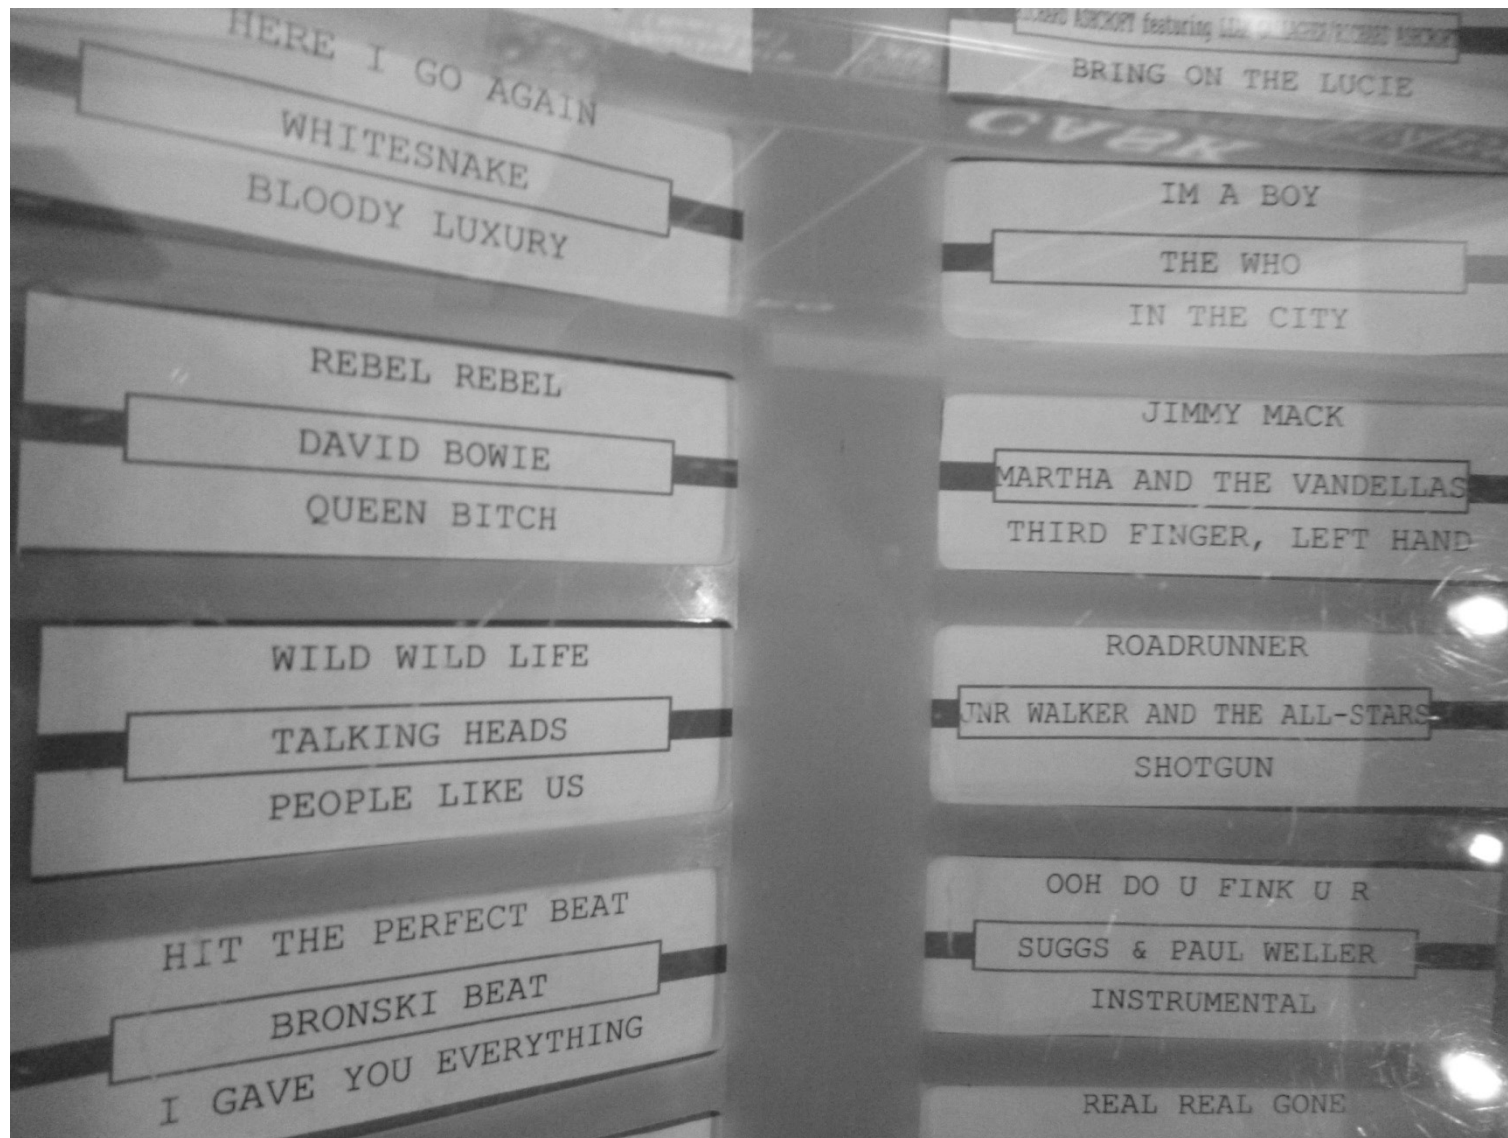 HERE I GO AGAIN
WHITESNAKE
BLOODY LUXURY
REBEL REBEL
DAVID BOWIE
QUEEN BITCH
WILD WILD LIFE
TALKING HEADS
PEOPLE LIKE US
HIT THE PERFECT BEAT
BRONSKI BEAT
I GAVE YOU EVERYTHING
RICHARD ASHCROFT featuring LIAM GALLAGHER/RICHARD ASHCROFT
BRING ON THE LUCIE
IM A BOY
THE WHO
IN THE CITY
JIMMY MACK
MARTHA AND THE VANDELLAS
THIRD FINGER, LEFT HAND
ROADRUNNER
JNR WALKER AND THE ALL-STARS
SHOTGUN
OOH DO U FINK U R
SUGGS & PAUL WELLER
INSTRUMENTAL
REAL REAL GONE